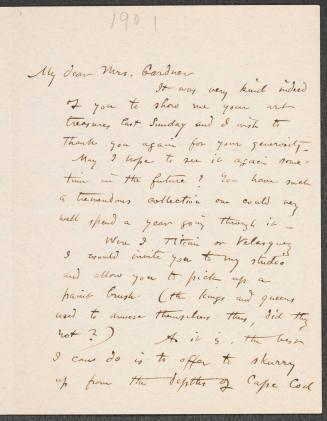 1901
My dear Mrs. Gardner
It was very kind indeed
of you to show me your art
treasures last Sunday and I wish to
thank you again for your generosity—
May I hope to see it again some-
time in the future? You have such
a tremendous collection one could very
well spend a year going through it—
Were I Titian or Velasquez
I would invite you to my studio
and allow you to pick up a
paint brush (the kings and queens
used to amuse themselves thus, did they
not?) As it is, the best
I can do is to offer to skurry
up from the depths of Cape Cod